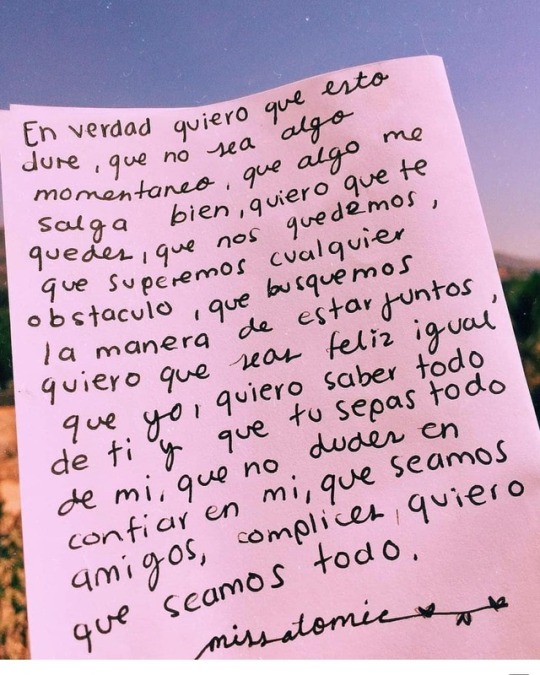 En verdad quiero que esto
dure, que no sea algo
momentaneo, que algo me
salga bien, quiero que te
quedes, que nos quedemos,
que superemos cualquier
obstaculo, que busquemos
la manera de estar juntos,
quiero que seas feliz igual
que yo, quiero saber todo
de ti y que tu sepas todo
de mi, que no dudes en
confiar en mi, que seamos
amigos, complices, quiero
que seamos todo.
missatomic